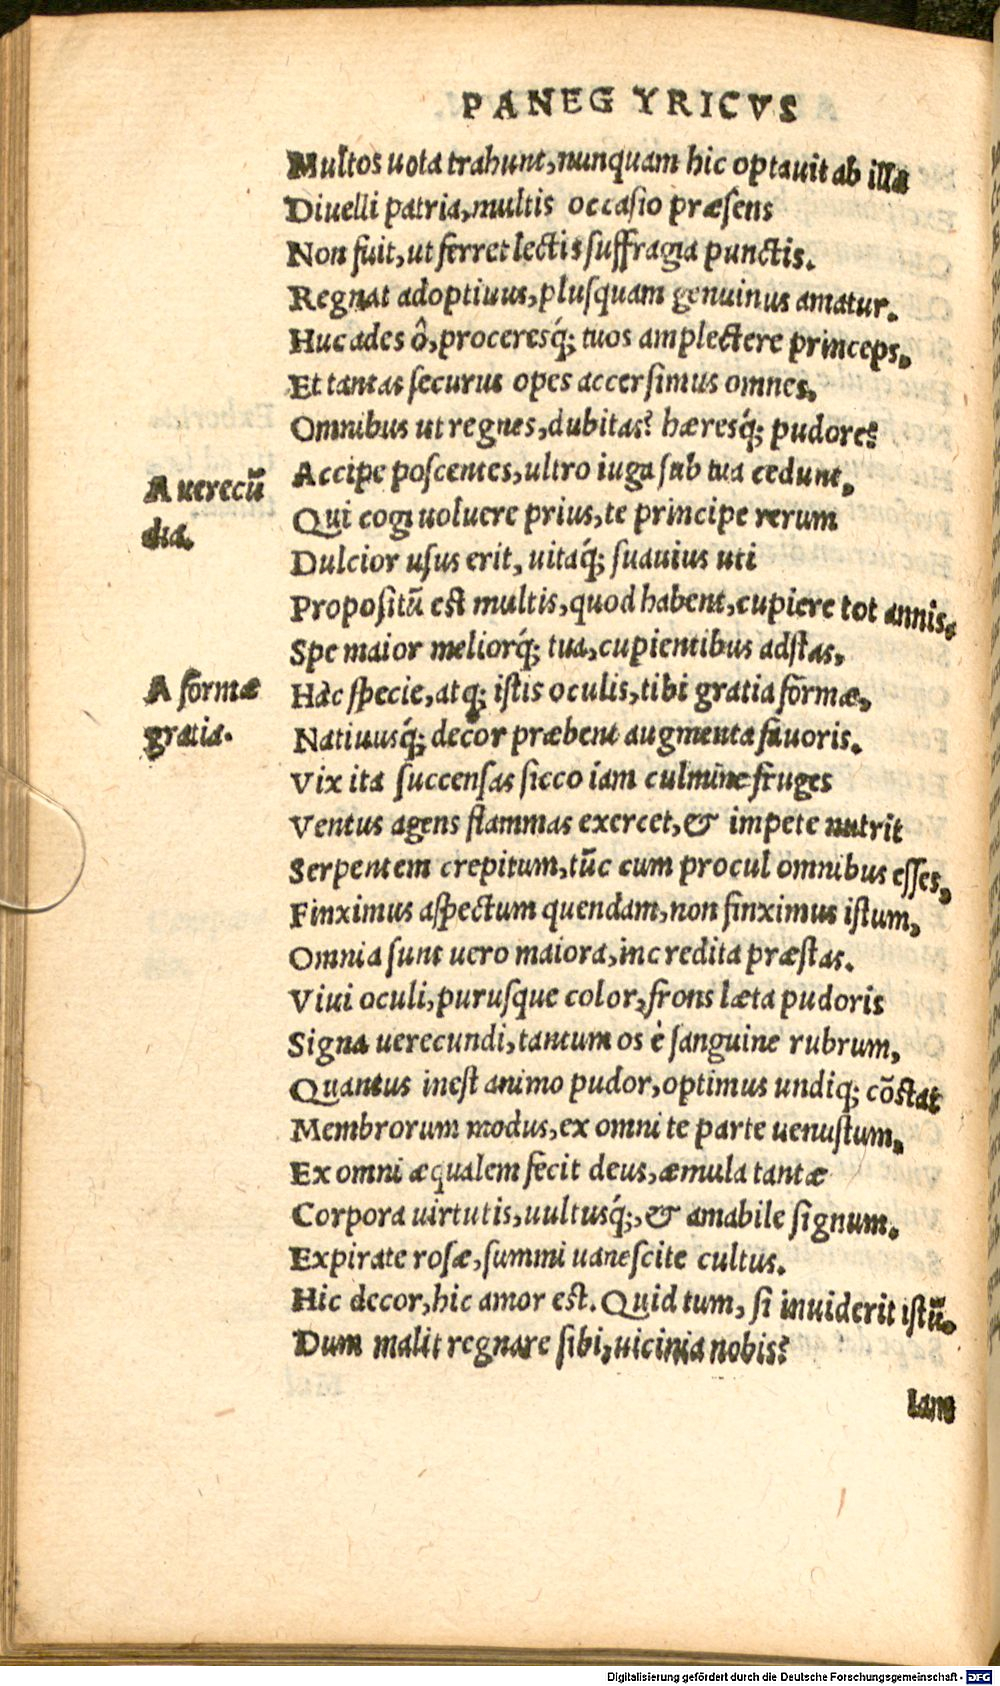 PANEGYRICVS
Multos uota trahunt, nunquam hic optauit ab illa
Diuelli patria, multis occasio præsens
Non fuit, ut ferret lectis suffragia punctis.
Regnat adoptiuus, plusquam genuinus amatur.
Huc ades ô, proceresq́; tuos amplectere princeps,
Et tantas securus opes accersimus omnes,
Omnibus ut regnes, dubitas? hæresq́; pudore?
Accipe poscentes, ultro iuga sub tua cedunt,
A uerecū
dia.
Qui cogi uoluere prius, te principe rerum
Dulcior usus erit, uitaq́; suauius uti
Propositū est multis, quod habent, cupiere tot annis,
Spe maior meliorq́; tua, cupientibus adstas,
A formæ
gratia.
Hac specie, atq; istis oculis, tibi gratia formæ,
Natiuusq́; decor præbent augmenta fauoris.
Vix ita succensas sicco iam culmine fruges
Ventus agens flammas exercet, & impete nutrit
Serpentem crepitum, tūc cum procul omnibus esses,
Finximus aspectum quendam, non finximus istum,
Omnia sunt uero maiora, incredita præstas.
Viui oculi, purusque color, frons læta pudoris
Signa uerecundi, tantum os è sanguine rubrum,
Quantus inest animo pudor, optimus undiq; cōstat
Membrorum modus, ex omni te parte uenustum,
Ex omni æqualem fecit deus, æmula tantæ
Corpora uirtutis, uultusq́;, & amabile signum.
Expirate rosæ, summi uanescite cultus.
Hic decor, hic amor est. Quid tum, si inuiderit istū,
Dum malit regnare sibi, uicinia nobis?
Iam
Digitalisierung gefördert durch die Deutsche Forschungsgemeinschaft - DFG